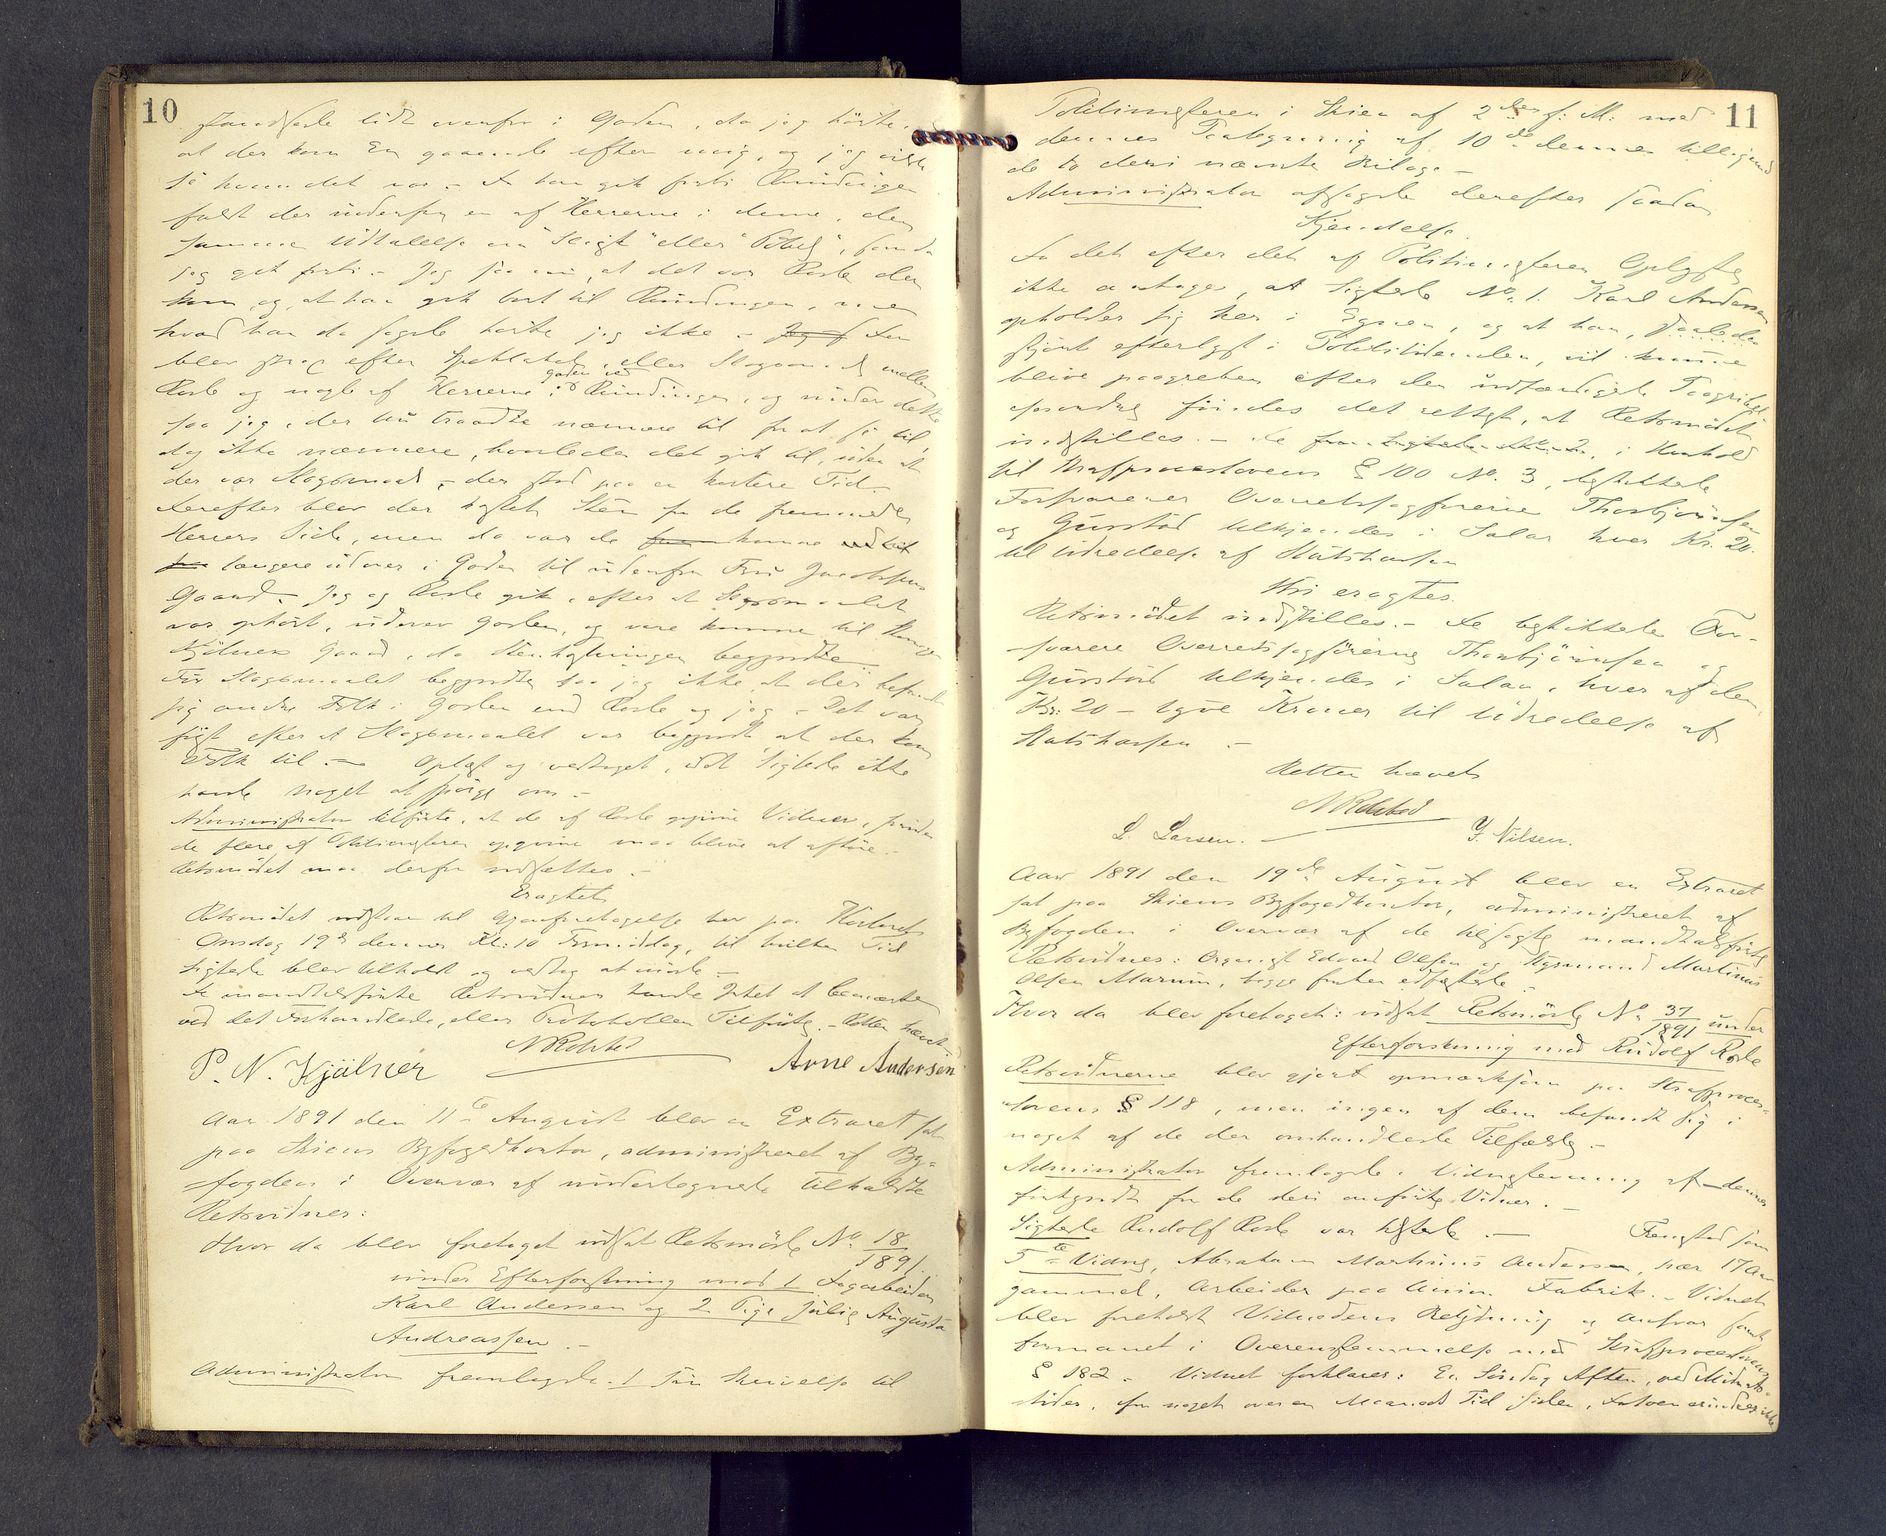 10
lidt ovenfor i Gaden, da jeg hørte,
at der kom En gaaende efter mig, og jeg vilde
se hvem det var. – Da han gik forbi Rundingen
faldt der udenfor en af Herrerne i denne, den
samme Udtalelse om "Sligt" eller "Pøbel", som da
jeg gik forbi. – Jeg saa nu, at det var Rosle der
kom, og at han gik bort til Rundingen, men
hvad han da sagde hørte jeg ikke. – Der
blev strax efter Spektakel, eller Slagsmaal mellem
Rosle og nogle af Herrerne i Gaden ved Rundingen, og under dette
saa jeg, der nu traadte nærmere til for at se til,
dog ikke nærmere, hvorledes det gik til, uden at
der var Slagsmaal, der stod paa en kortere Tid.
Derefter blev der kastet Sten fra de fremmede
Herrers Side, men da var de komne
længere udover i Gaden til udenfor Fru Jacobsens
Gaard. – Jeg og Rosle gik, efter at Slagsmaalet
var ophørt, udover Gaden, og vare komne til
Kjølners Gaard, da Stenkastningen begyndte.
Før Slagsmaalet begyndte saa jeg ikke, at der befandt
sig andre Folk i Gaden end Rosle og jeg. – Det var
først efter at Slagsmaalet var begyndt at der kom
Folk til. – Oplæst og vedtaget, idet Sigtede ikke
havde noget at spørge om. –
Administrator tilførte, at de af Rosle opgivne Vidner, foruden
de flere af Politimesteren opgivne maa blive at afhøre. –
Retsmødet maa derfor udsættes. –
Eragtet
Retsmødet udstaar til Gjenforetagelse her paa Kontoret
Onsdag 19de dennes Kl: 10 Formiddag, til hvilken Tid
Sigtede blev tilholdt og vedtog at møde. –
De mandtalsførte Retsvidner havde Intet at bemærke
ved det Forhandlede, eller Protokollens Tilførte. – Retten hævet.
P. N. Kjølner Arne Andersen
Aar 1891 den 11te August blev en Extraret sat
paa Skiens Byfogedkontor, administreret af By-
fogden i Overvær af undertegnede tilkaldte
Retsvidner:
Hvor da blev foretaget udsat Retsmøde No 18/1891
under Efterforskning mod 1. Jagarbeider
Karl Andersen og 2. Pige Julie Augusta
Andreassen. –
Administrator fremlagde 1 Sin Skrivelse til
11
Politimesteren i Skien af 2den f: M: med
dennes Paategning af 10de dennes tilligemed
de to deri nævnte Bilage –
Administrator afsagde derefter saadan
Kjendelse.
Da det efter det af Politimesteren Oplyste
ikke antages, at Sigtede No. 1. Karl Andersen
opholder sig her i Egnen, og at han, saaledes
skjønt efterlyst i Politidtidenden, vil kunne
blive paagreben efter den udfærdigede Paagribelses-
findes det rettest, at Retsmødet
indstilles. – De i Henhold
til Straffproceslovens § 100 No. 3, beskikkede
Forsvarere Overretssagførerne Thorbjørnsen
og Gurstad tilkjendes i Salær hver Kr. 20.
til Udredelse af Statskassen
Thi eragtes.
Retsmødet indstilles. – De beskikkede For-
svarere Overretssagførerne Thorbjørnsen og
Gurstad tilkjendes i Salær, hver af dem
Kr: 20 – tyve Kroner til Udredelse af
Statskassen –
Retten hævet
L. Larsen. – Y. Nilsen.
Aar 1891 den 19de August blev en Extraret
sat paa Skiens Byfogedkontor, administreret af
Byfogden i Overvær af de tilsagte mandtalsførte
Retsvidner: Organist Edvard Olsen og Styrmand Martinius
Olsen Marum, begge forhen edfæstede. –
Hvor da blev foretaget: udsat Retsmøde No 37/1891 under
Efterforskning mod Rudolf Rosle
Retsvidnerne blev gjort opmærksom paa Straffproces-
lovens § 118, men ingen af dem befandt sig i
noget af de der omhandlede Tilfælde. –
Administrator fremlagde 1 Vidnestevning af dennes
forkyndt for de deri anførte Vidner. –
Sigtede Rudolf Rosle var tilstede. – Fremstod som
5te Vidne, Abraham Martinius Andersen, nær 17 Aar
gammel, Arbeider paa Union Fabrik. – Vidnet
blev foreholdt Vidneedens Betydning og Ansvar samt
formanet i Overensstemmelse med Straffproceslovens
§ 182. – Vidnet forklarer: En Søndag Aften, ved Midnats-
tider, for noget over en Maaneds Tid siden, Datoen erindres ikke